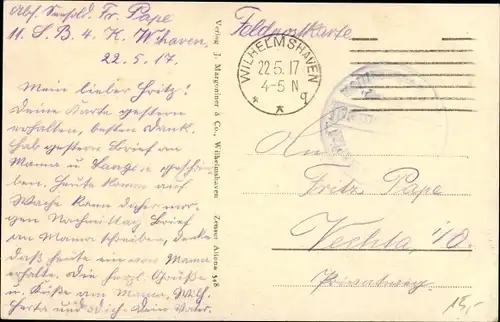 Abs. Seesold. Fr. Pape
11. S. B. 4. K. W'shaven,
22.5.17.
Mein lieber Fritz!
Deine Karte gestern
erhalten, besten Dank.
Hab gestern Brief an
Mama u. geschrie-
ben. Heute komm auf
Wache kann daher mor-
gen Nachmittag Brief
an Mama schreiben, denke
daß heute ein von Mama
erhalte. Die herzl. Grüße
u. Küße an Mama, Wilh.
Herta und Dich. Dein Vater.
Verlag J. Margoniner & Co., Wilhelmshaven Zensur Altona 348
Feldpostkarte
WILHELMSHAVEN
22.5.17
4-5 N
* * q
An
Fritz Pape
Vechta i/O.
15,-